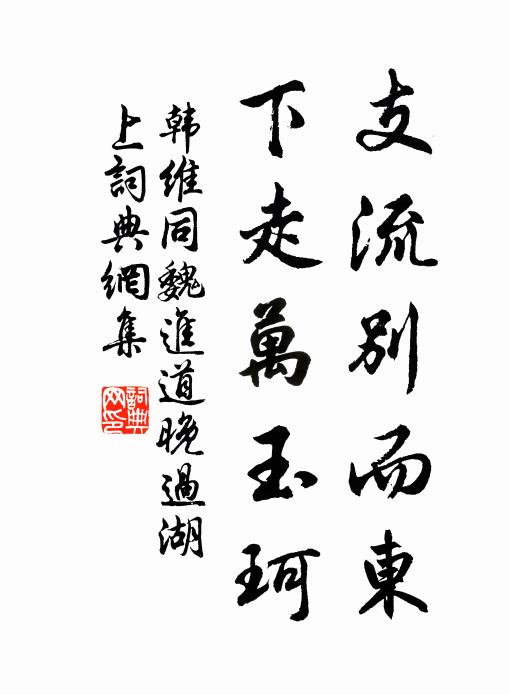 支流别而東
下走萬玉珂
韩維同魏進道晚過湖
上詞典網集
詞典网印